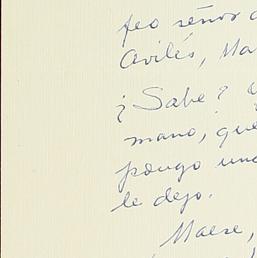 feo señor
Avilés, Ma
¿Sabe?
mano, que
pongo una
le dejo.
Maese,